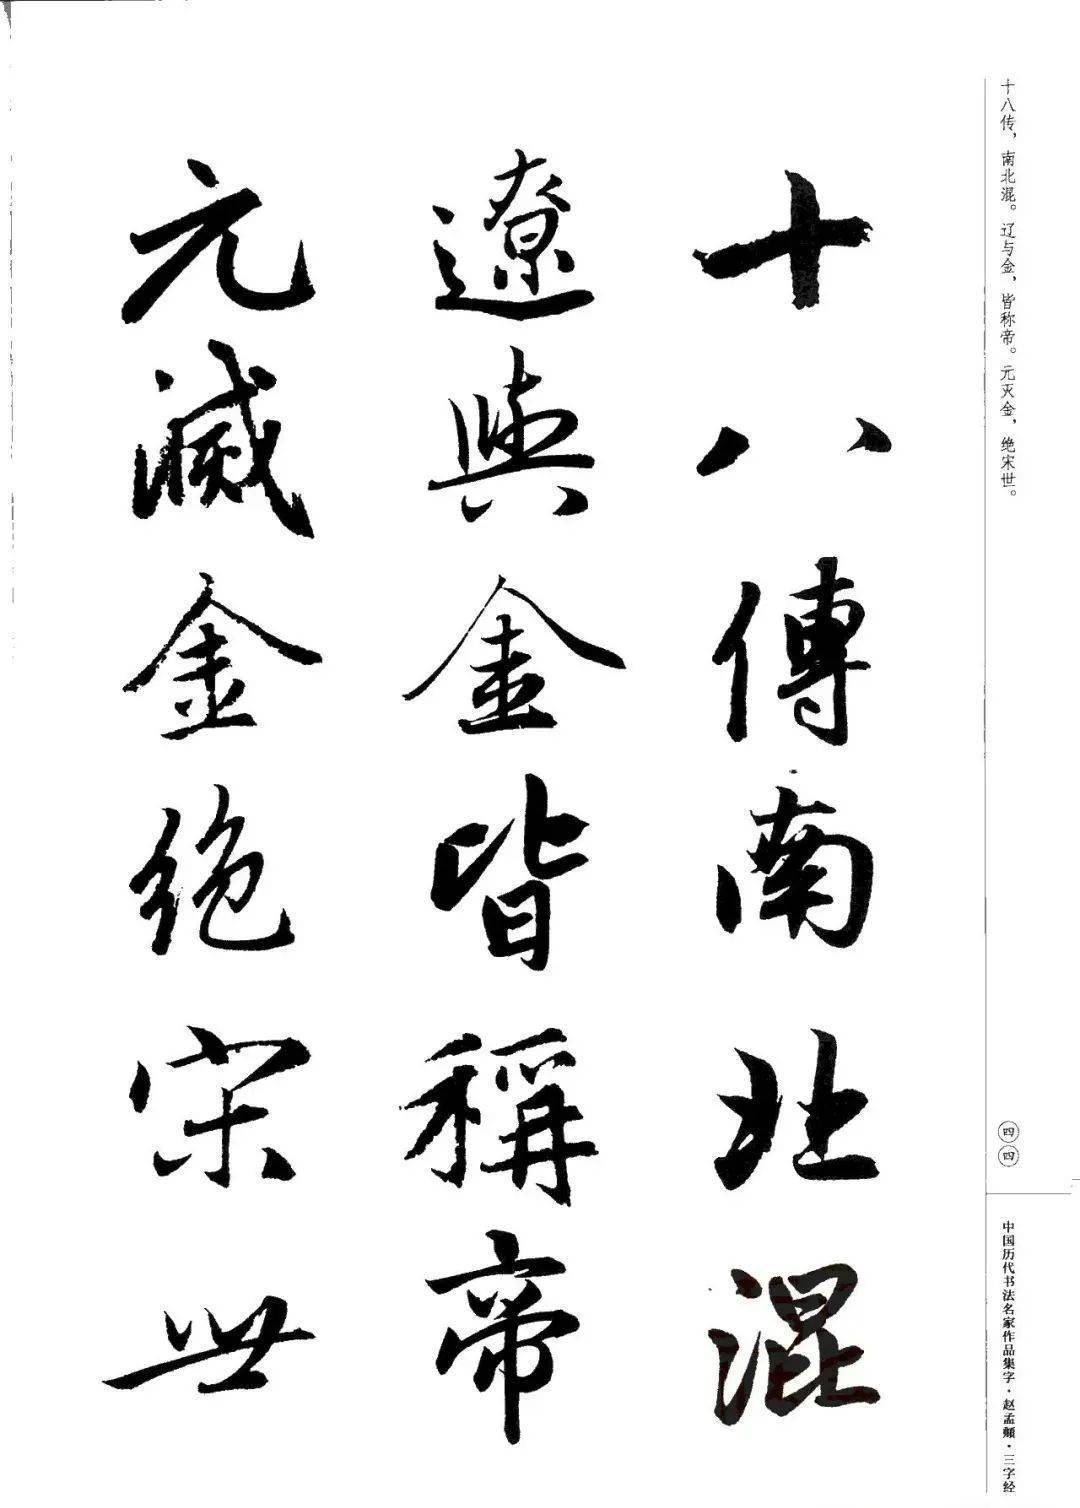 十八传，南北混。辽与金，皆称帝。元灭金，绝宋世。
十八傳南北混
遼與金皆稱帝
元滅金絶宋世
四四
中国历代书法名家作品集字·赵孟頫·三字经